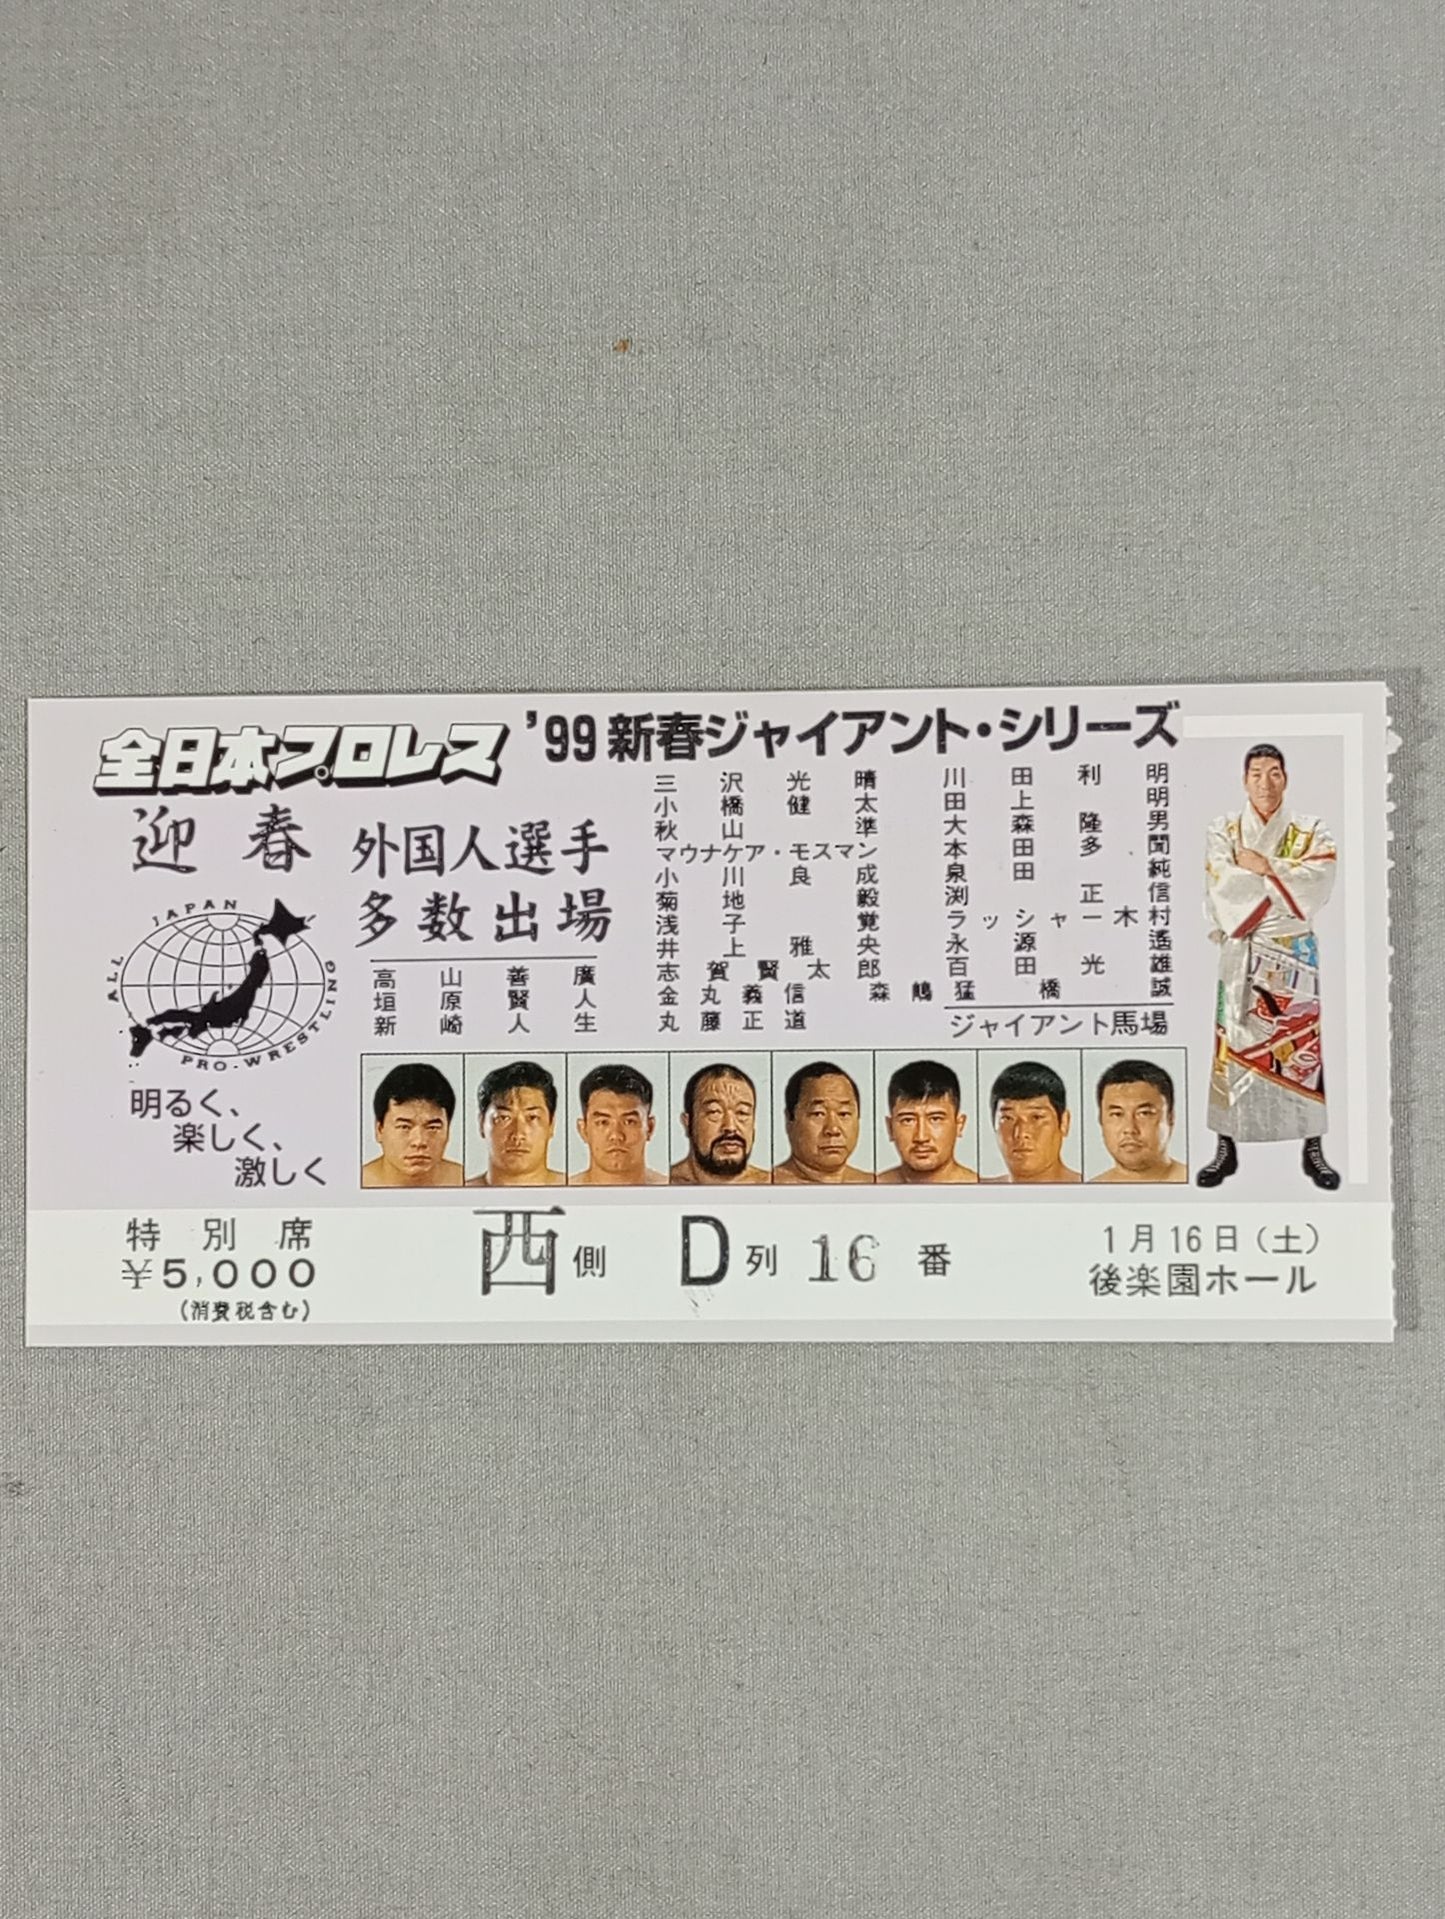 全日本プロレス '99 新春ジャイアント・シリーズ
迎春
外国人選手
多数出場
ALL JAPAN PRO-WRESTLING
明るく、
楽しく、
激しく
高山善廣
垣原賢人
新崎人生
三沢光晴
小橋健太
秋山準
マウナケア・モスマン
小川良成
菊地毅
浅子覚
井上雅央
志賀賢太郎
金丸義信
丸藤正道
川田利明
田上明
大森隆男
本田多聞
泉田純
渕正信
ラッシャー木村
永源遙
百田光雄
森嶋猛
橋誠
ジャイアント馬場
特別席
¥5,000
(消費税含む)
西側 D列 16番
1月16日(土)
後楽園ホール